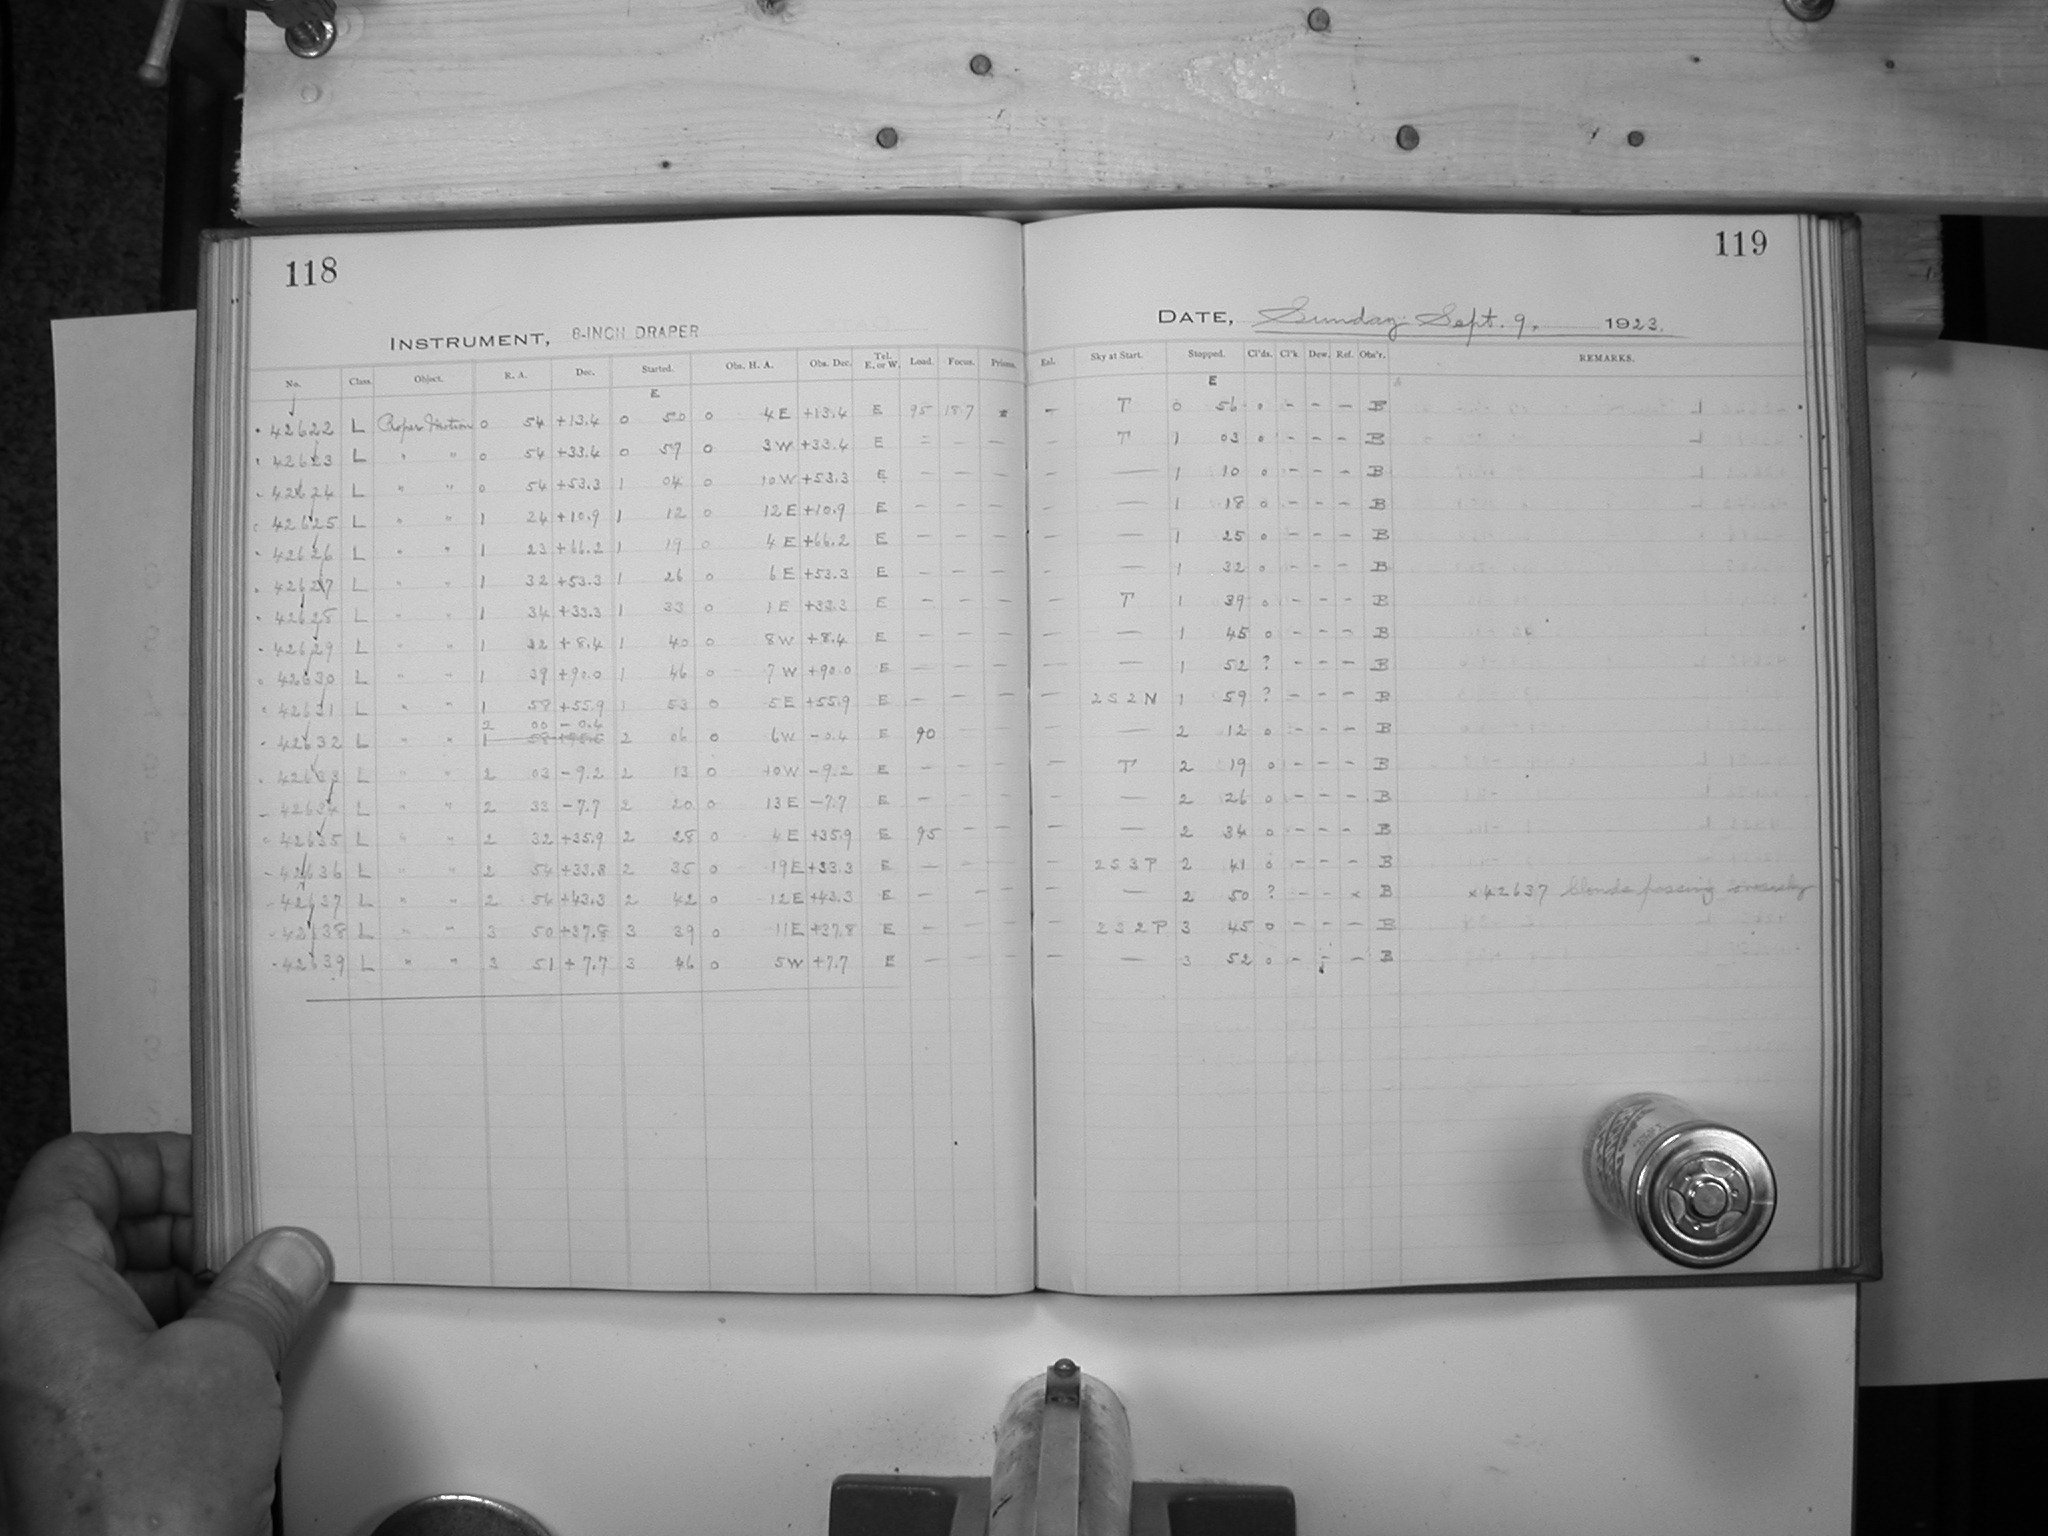 118
INSTRUMENT, 8-INCH DRAPER
No. Class. Object. R. A. Dec. Started. Obs. H. A. Obs. Dec. Tel. E. or W. Load. Focus. Prisms.
E
42622 L Proper Motion 0 54 +13.4 0 50 0 4 E +13.4 E 95 18.7 *
42623 L " " 0 54 +33.4 0 57 0 3 W +33.4 E = — —
42624 L " " 0 54 +53.3 1 04 0 10 W +53.3 E — — —
42625 L " " 1 24 +10.9 1 12 0 12 E +10.9 E — — —
42626 L " " 1 23 +66.2 1 19 0 4 E +66.2 E — — —
42627 L " " 1 32 +53.3 1 26 0 6 E +53.3 E — — —
42628 L " " 1 34 +33.3 1 33 0 1 E +33.3 E — — —
42629 L " " 1 32 +8.4 1 40 0 8 W +8.4 E — — —
42630 L " " 1 39 +90.0 1 46 0 7 W +90.0 E — — —
42631 L " " 1 58 +55.9 1 53 0 5 E +55.9 E — — —
2 00 -0.4
42632 L " " 1 58 2 06 0 6 W -0.4 E 90 — —
42633 L " " 2 03 -9.2 2 13 0 10 W -9.2 E — — —
42634 L " " 2 33 -7.7 2 20 0 13 E -7.7 E — — —
42635 L " " 2 32 +35.9 2 28 0 4 E +35.9 E 95 — —
42636 L " " 2 54 +33.8 2 35 0 19 E +33.3 E — — —
42637 L " " 2 54 +43.3 2 42 0 12 E +43.3 E — — —
42638 L " " 3 50 +37.8 3 39 0 11 E +37.8 E — — —
42639 L " " 3 51 +7.7 3 46 0 5 W +7.7 E — — —
119
DATE, Sunday Sept. 9, 1923.
Exl. Sky at Start. Stopped. Cl'ds. Cl'k. Dew. Ref. Obs'r. REMARKS.
E
— T 0 56 0 - - - B
— T 1 03 0 - - - B
— — 1 10 0 - - - B
— — 1 18 0 - - - B
— — 1 25 0 - - - B
— — 1 32 0 - - - B
— T 1 39 0 - - - B
— — 1 45 0 - - - B
— — 1 52 ? - - - B
— 2 S 2 N 1 59 ? - - - B
— — 2 12 0 - - - B
— T 2 19 0 - - - B
— — 2 26 0 - - - B
— — 2 34 0 - - - B
— 2 S 3 P 2 41 0 - - - B
— — 2 50 ? - - x B x 42637 Clouds passing
— 2 S 2 P 3 45 0 - - - B
— — 3 52 0 - - - B